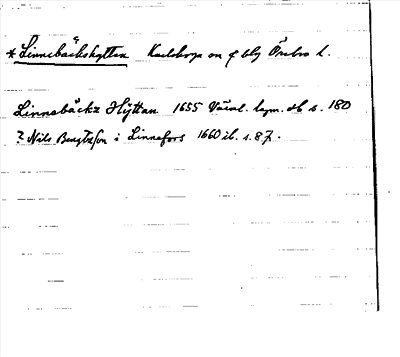 * Linnebäckshyttan Karlskoga sn f blg Örebro l.
Linnebäckz Hÿttan 1655 Värml. hym. db s. 180
? Nils Bengtzson i Linnefors 1660 ib. s. 87.